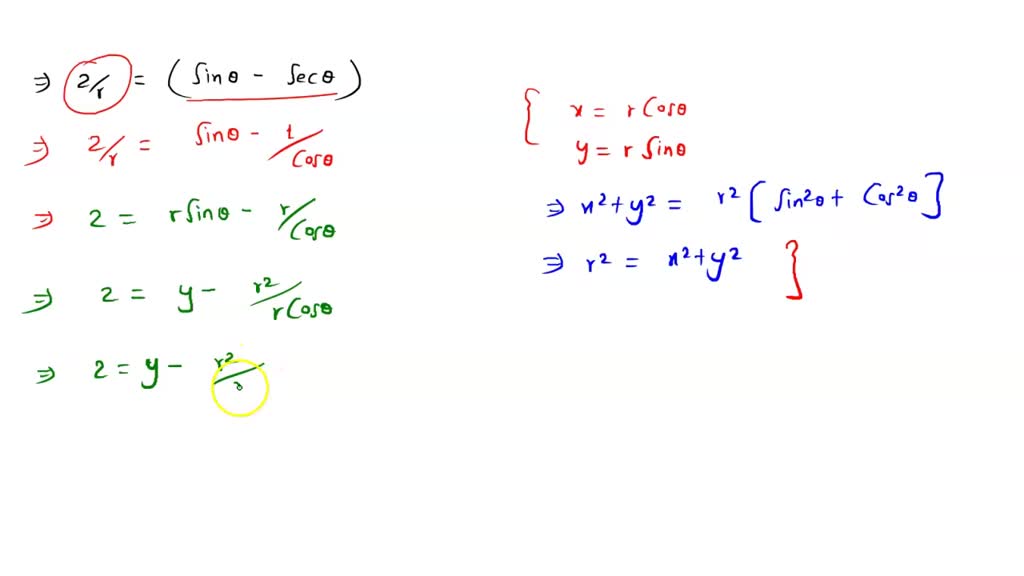 ⇒ 2/r = (Sinθ - Secθ)
⇒ 2/r = Sinθ - 1/Cosθ
⇒ 2 = rSinθ - r/Cosθ
⇒ 2 = y - r²/rCosθ
⇒ 2 = y - r²/
{ x = r Cosθ
y = r Sinθ
⇒ x²+y² = r² [Sin²θ + Cos²θ]
⇒ r² = x²+y² }